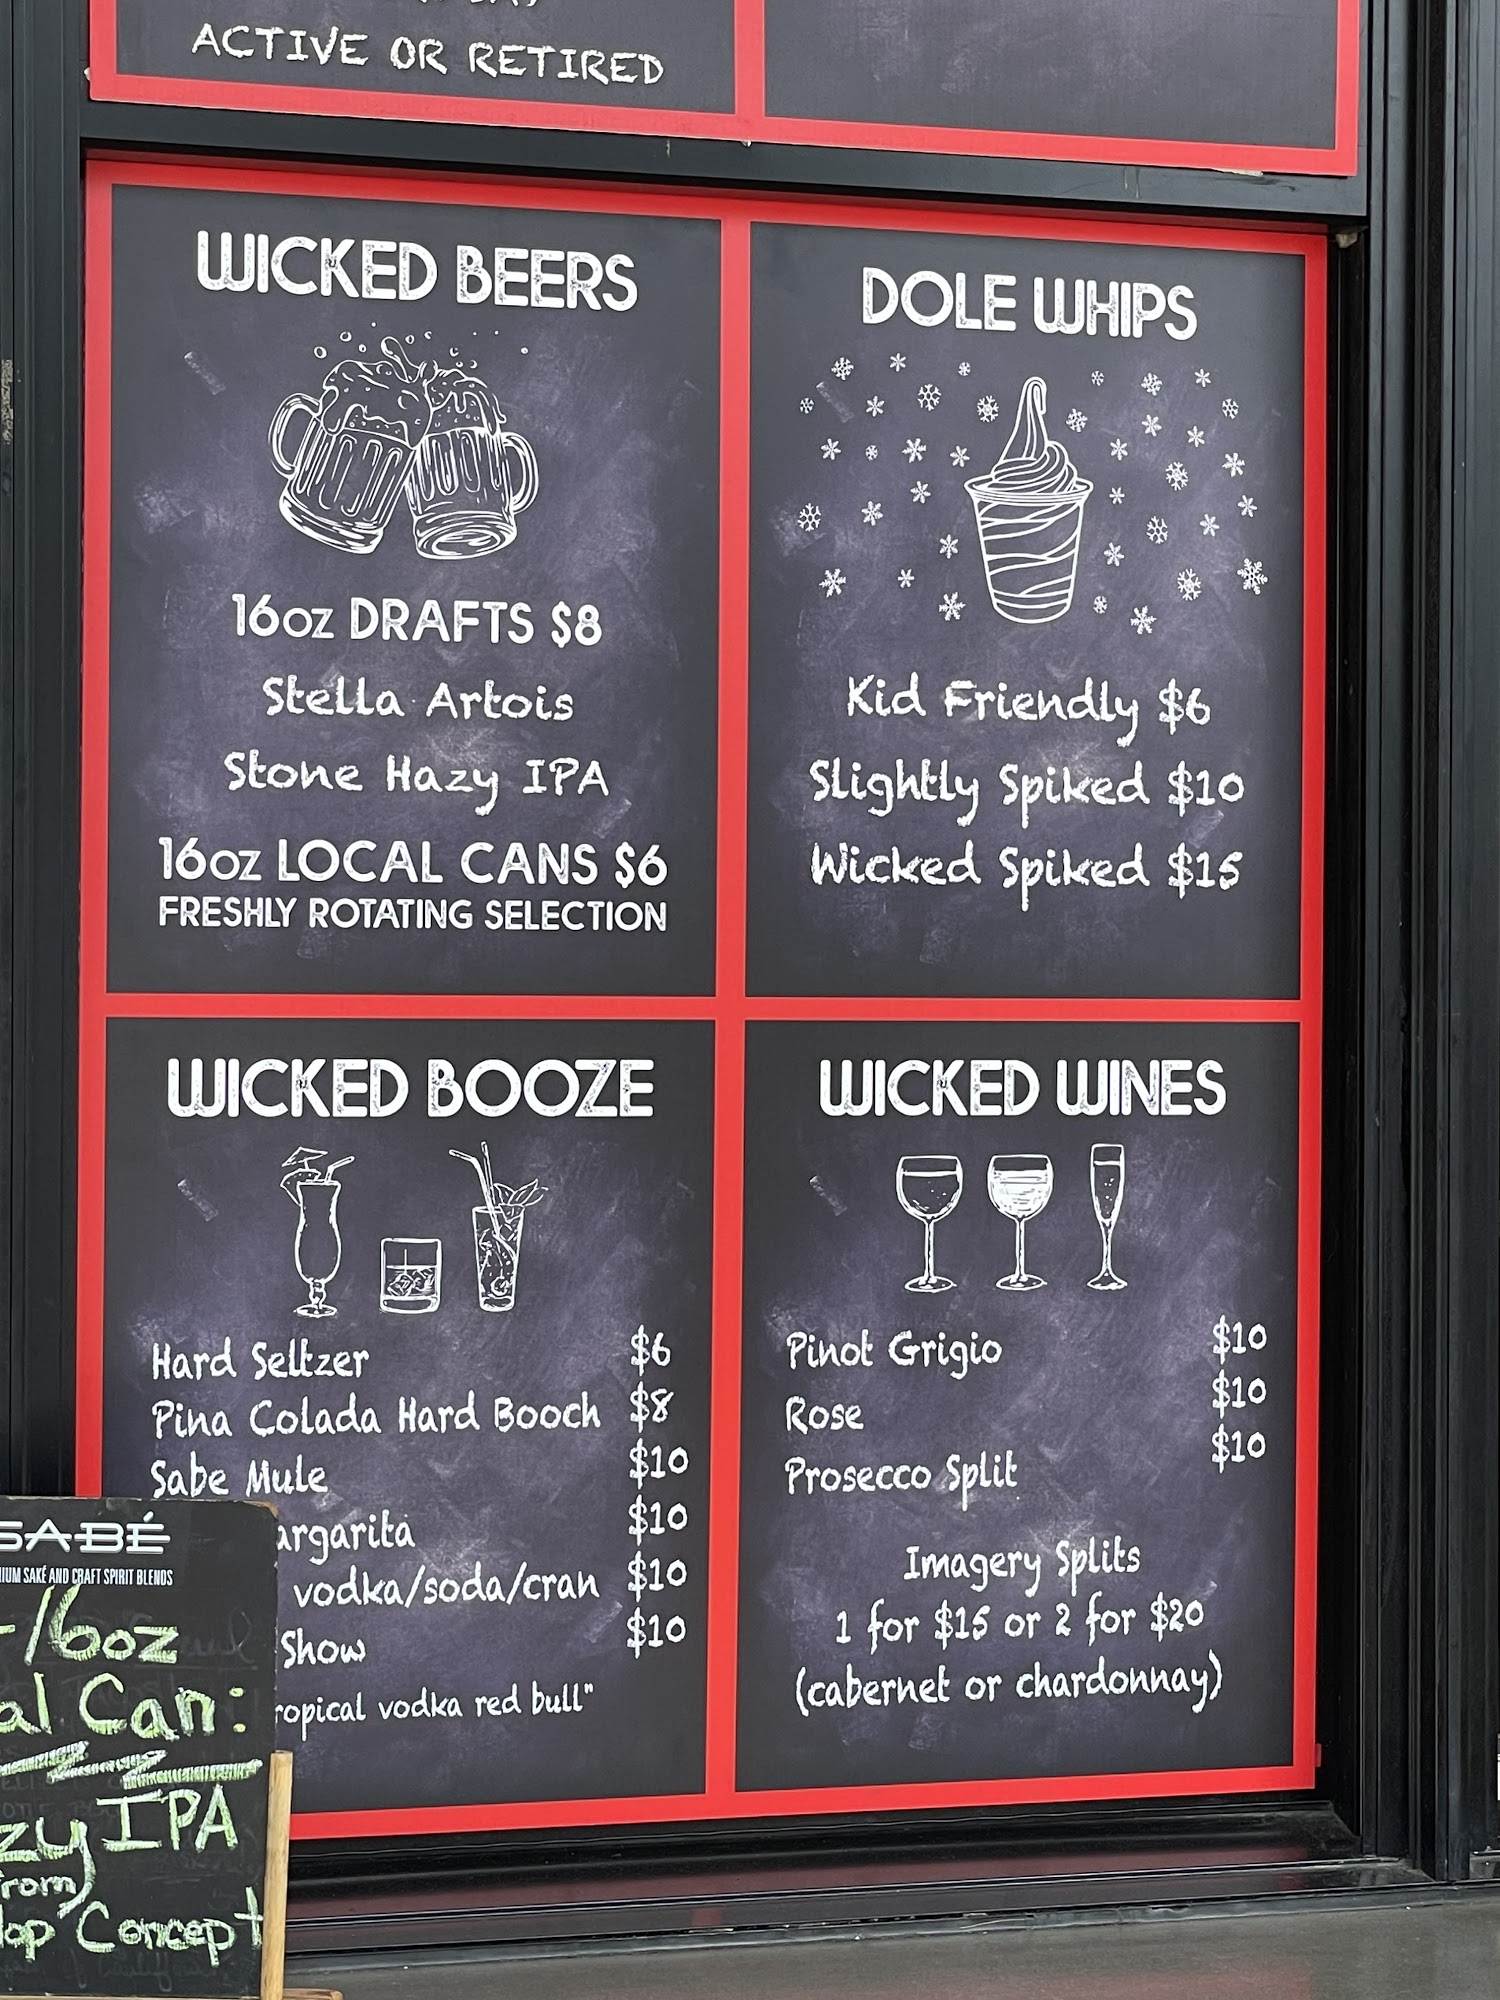 ACTIVE OR RETIRED
WICKED BEERS
16oz DRAFTS $8
Stella Artois
Stone Hazy IPA
16oz LOCAL CANS $6
FRESHLY ROTATING SELECTION
DOLE WHIPS
Kid Friendly $6
Slightly Spiked $10
Wicked Spiked $15
WICKED BOOZE
Hard Seltzer $6
Pina Colada Hard Booch $8
Sabe Mule $10
argarita $10
vodka/soda/cran $10
Show $10
ropical vodka red bull"
WICKED WINES
Pinot Grigio $10
Rose $10
Prosecco Split $10
Imagery Splits
1 for $15 or 2 for $20
(cabernet or chardonnay)
SABÉ
IUM SAKÉ AND CRAFT SPIRIT BLENDS
16oz
al Can:
zy IPA
from
op Concept